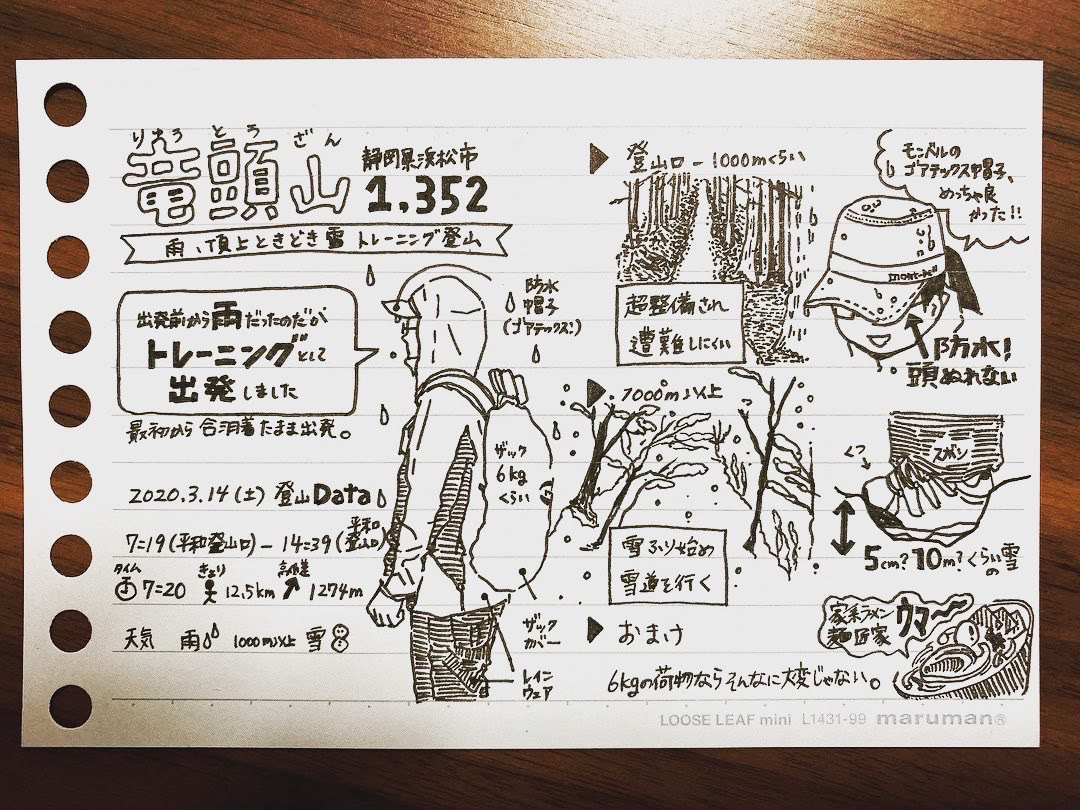 りゅうとうざん
竜頭山
静岡県浜松市
1,352
雨、頂上ときどき雪 トレーニング登山
出発前から雨だったのだが、
トレーニングとして
出発しました
最初から合羽着たまま出発。
2020.3.14(土) 登山Data
7=19(平和登山口) - 14=39(平和登山口)
タイム
7=20
きょり
12.5km
高低差
1274m
天気 雨 1000m以上 雪
防水
帽子
(ゴアテックス!)
ザック
6kg
くらい
ザック
カバー
レイン
ウェア
登山口 - 1000mくらい
超整備され
遭難しにくい
1000m以上
雪ふり始め
雪道を行く
おまけ
6kgの荷物ならそんなに大変じゃない。
モンベルの
ゴアテックス帽子、
めっちゃ良
かった!!
mont-bell
防水!
頭ぬれない
ズボン
くつ
5cm?10m?くらいの雪
家系ラーメン
麺匠家
ウマ〜
LOOSE LEAF mini L1431-99 maruman®